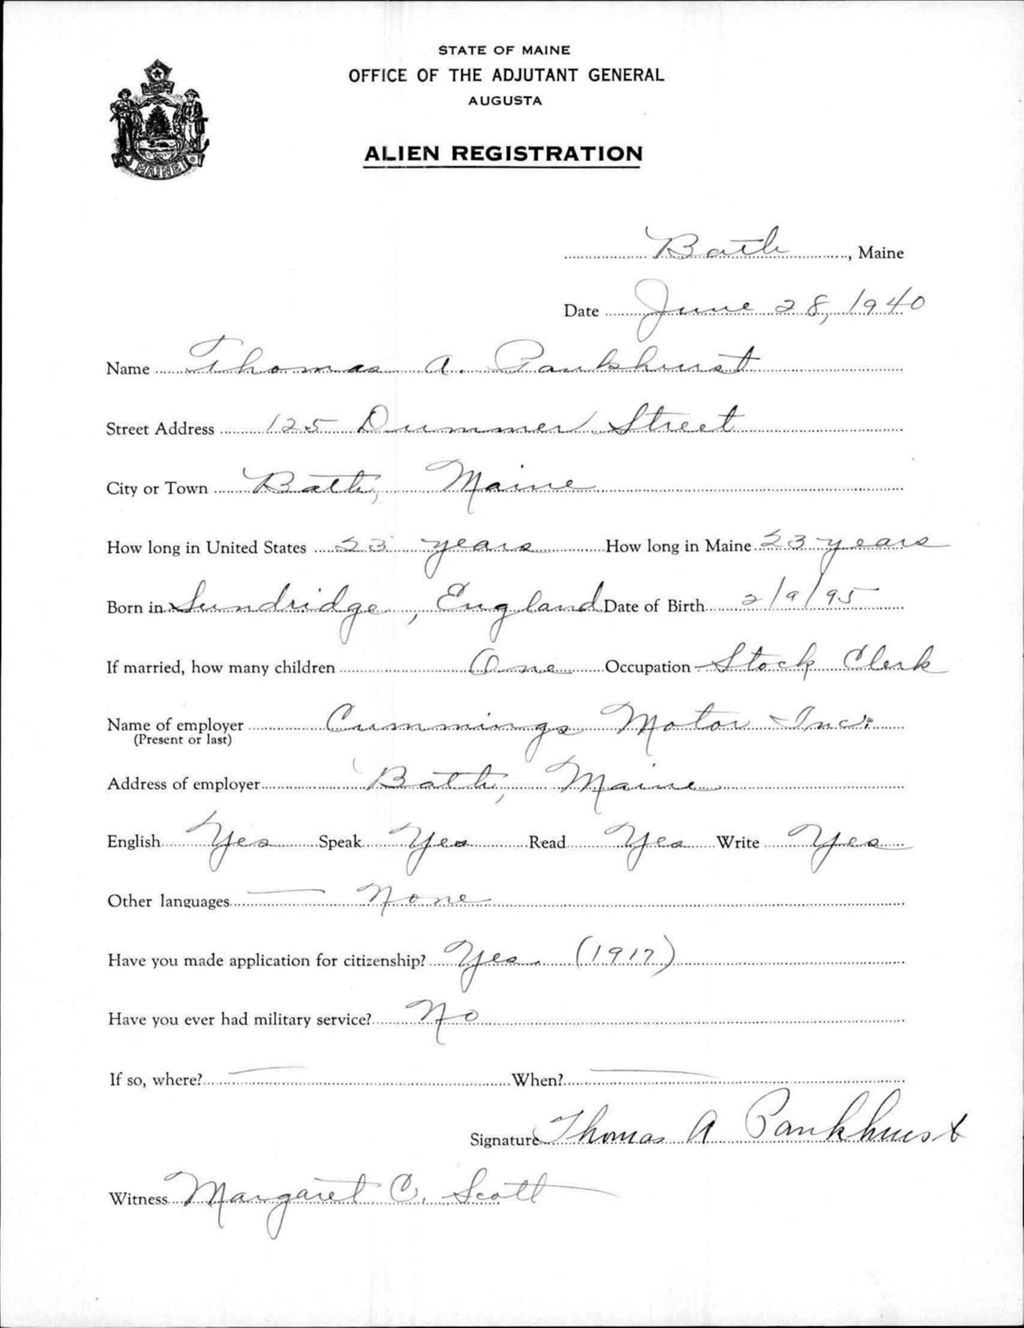 STATE OF MAINE
OFFICE OF THE ADJUTANT GENERAL
AUGUSTA
ALIEN REGISTRATION
MAINE
Bath, Maine
Date June 28, 1940
Name Thomas A. Pankhurst
Street Address 125 Dummer Street
City or Town Bath, Maine
How long in United States 23 years How long in Maine 23 years
Born in Sundridge, England Date of Birth 2/9/95
If married, how many children One Occupation Stock Clerk
Name of employer Cummings Motor Inc.
(Present or last)
Address of employer Bath, Maine
English Yes Speak Yes Read Yes Write Yes
Other languages — None
Have you made application for citizenship? Yes. (1917)
Have you ever had military service? No
If so, where? — When? —
Signature Thomas A Pankhurst
Witness Margaret C. Scott